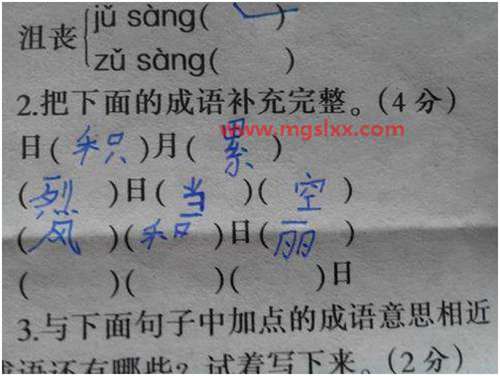 沮丧 jǔ sàng( )
zǔ sàng( )
2.把下面的成语补充完整。(4分)
www.mgslxx.com
日(积)月(累)
(烈)日(当)(空)
(风)(和)日(丽)
( )( )( )日
3.与下面句子中加点的成语意思相近
成语还有哪些?试着写下来。(2分)